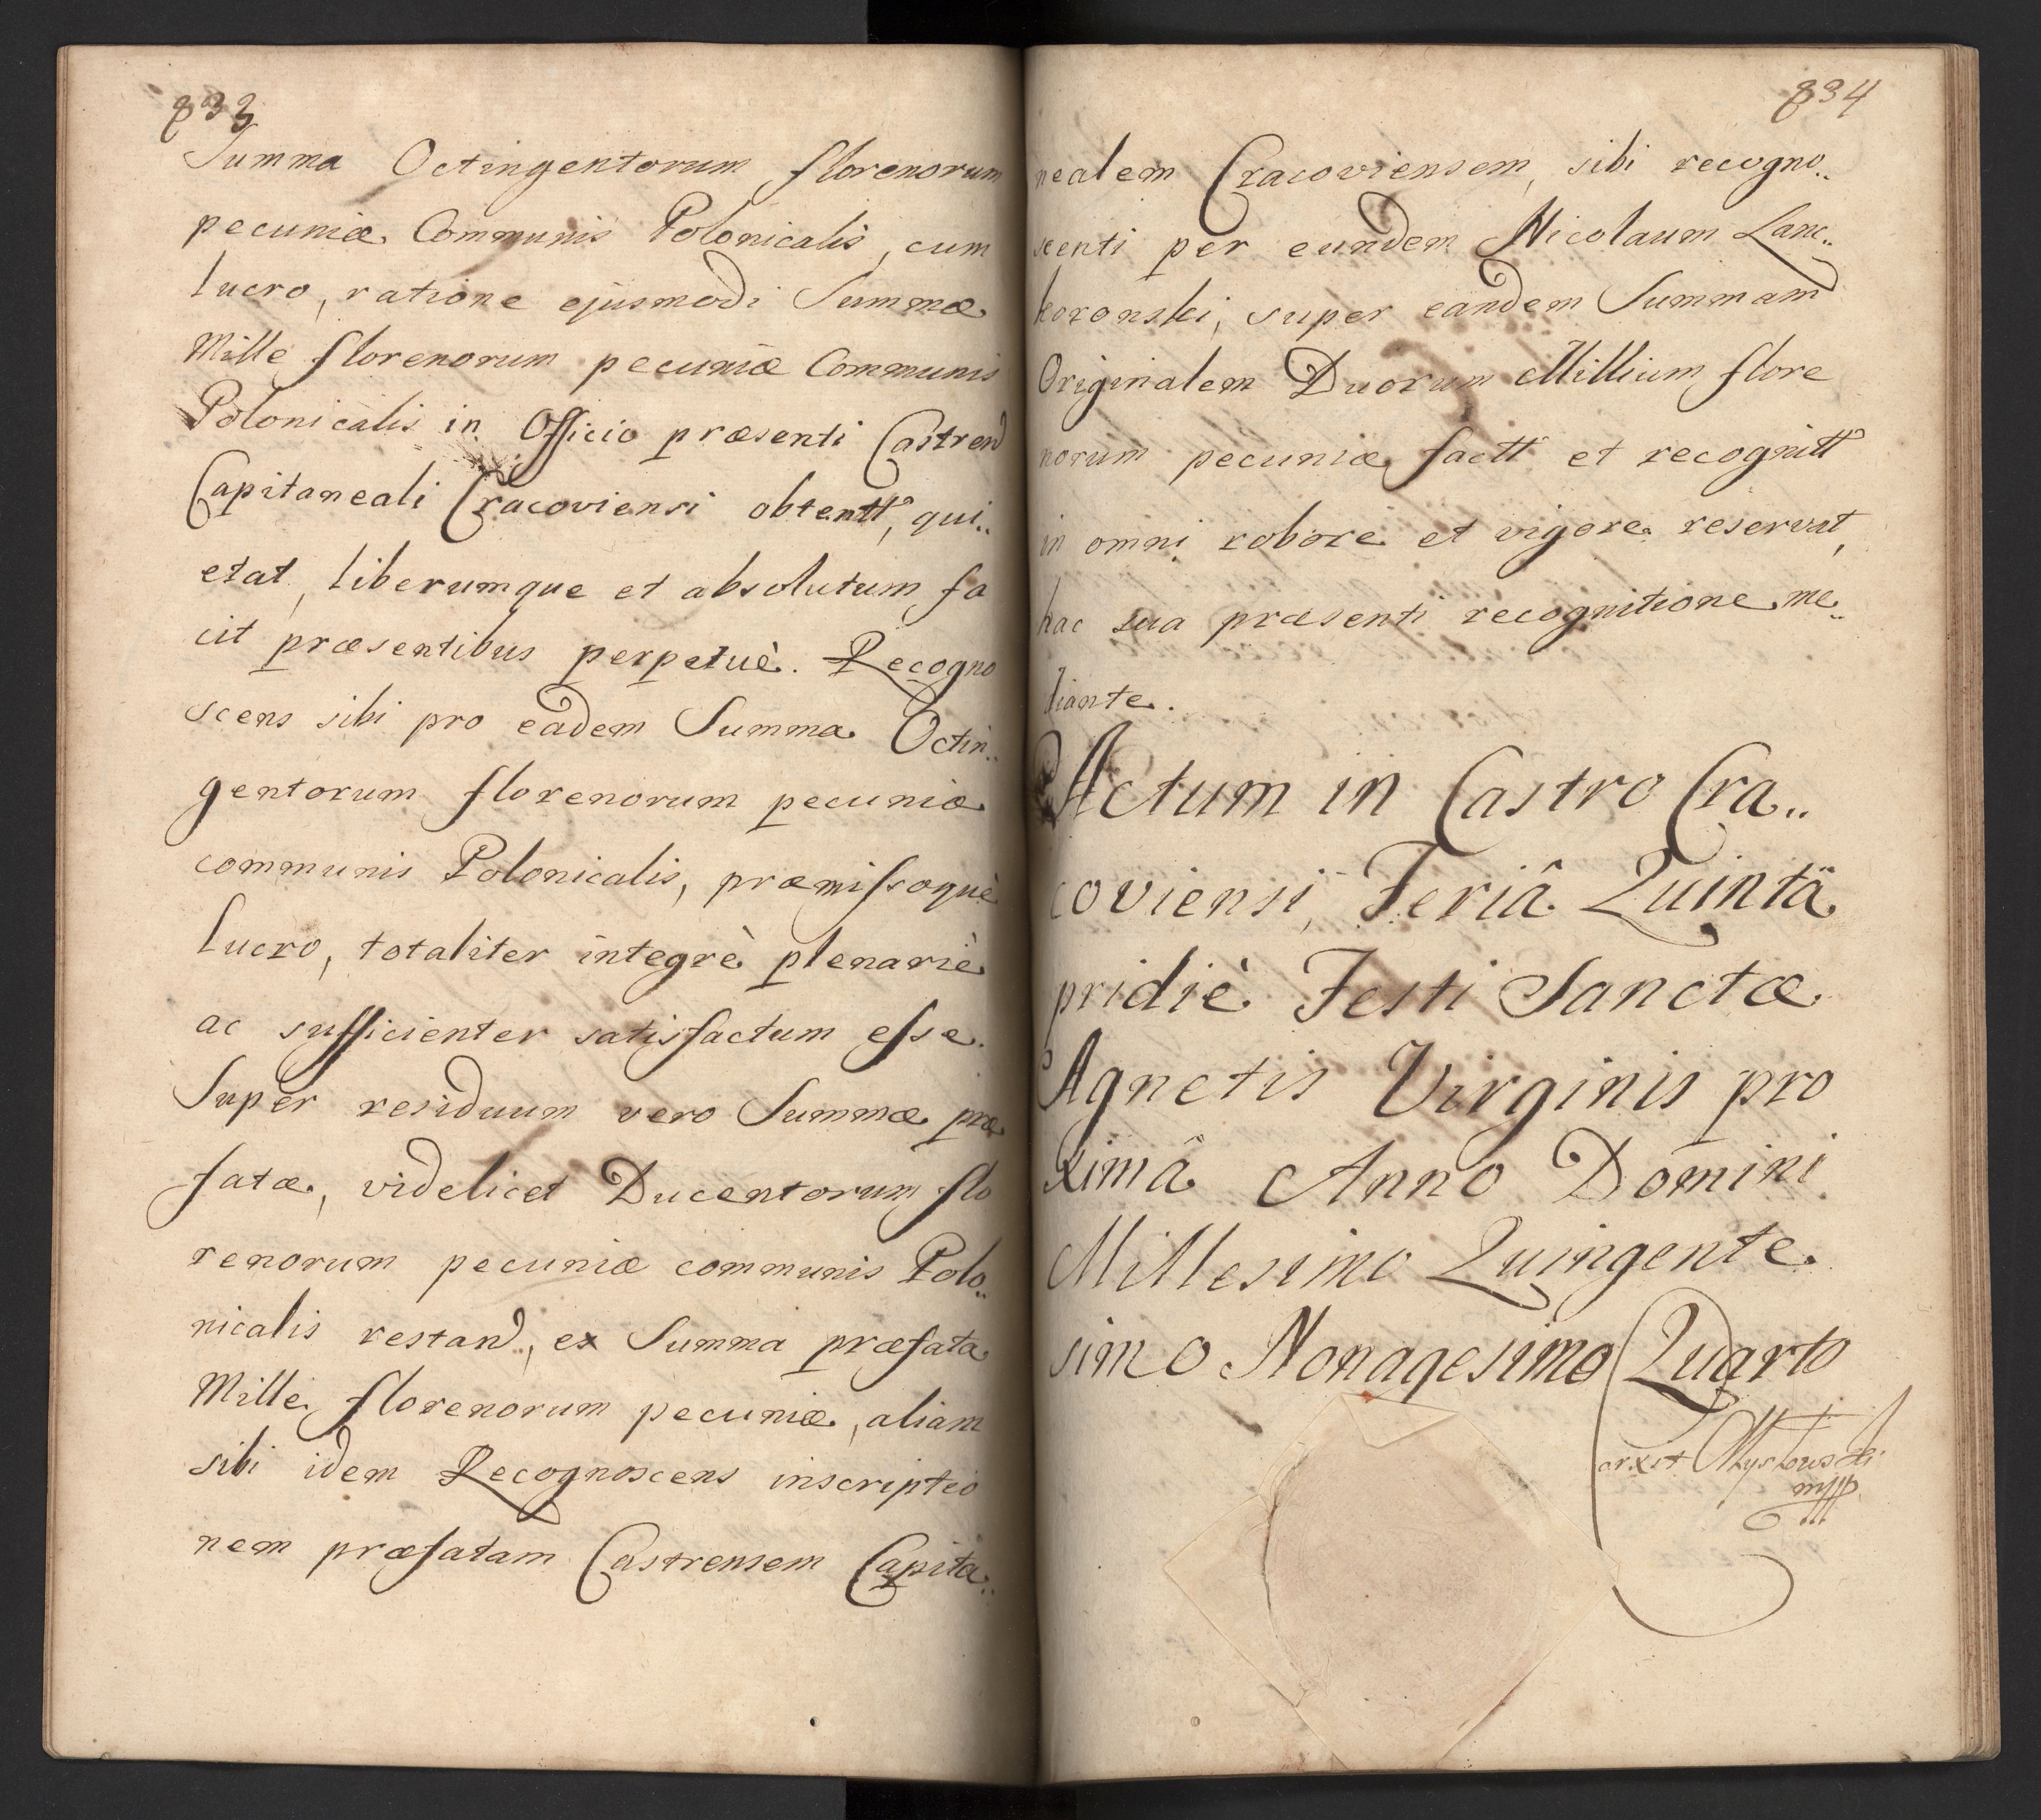 833
Summa Octingentorum florenorum
pecuniæ Communis Polonicalis, cum
lucro, ratione ejusmodi Summæ
Mille florenorum pecuniæ Communis
Polonicalis in Officio præsenti Castren
Capitaneali Cracoviensi obtentt, qui..
etat, liberumque et absolutum fa
cit præsentibus perpetuè. Recogno
scens sibi pro eadem Summa Octin..
gentorum florenorum pecuniæ
communis Polonicalis, præmissoquè
lucro, totaliter integrè plenariè
ac sufficienter satisfactum esse.
Super residuum vero Summæ præ
fatæ, videlicet Ducentorum flo
renorum pecuniæ communis Polo..
nicalis restand, ex Summa præfata
Mille florenorum pecuniæ, aliam
sibi idem Recognoscens inscriptio
nem præfatam Castrensem Capita..
834
nealem Cracoviensem, sibi recogno..
scenti per eundem Nicolaum Lanc..
koronski, super eandem Summam
Originalem Duorum Millium flore
norum pecuniæ factt et recognitt
in omni robore et vigore reservat,
hac sua præsenti recognitione me..
diante.
Actum in Castro Cra..
coviensi, Feriâ Quintâ
pridiè Festi Sanctæ
Agnetis Virginis pro
ximâ Anno Domini
Millesimo Quingente
simo Nonagesimo Quarto